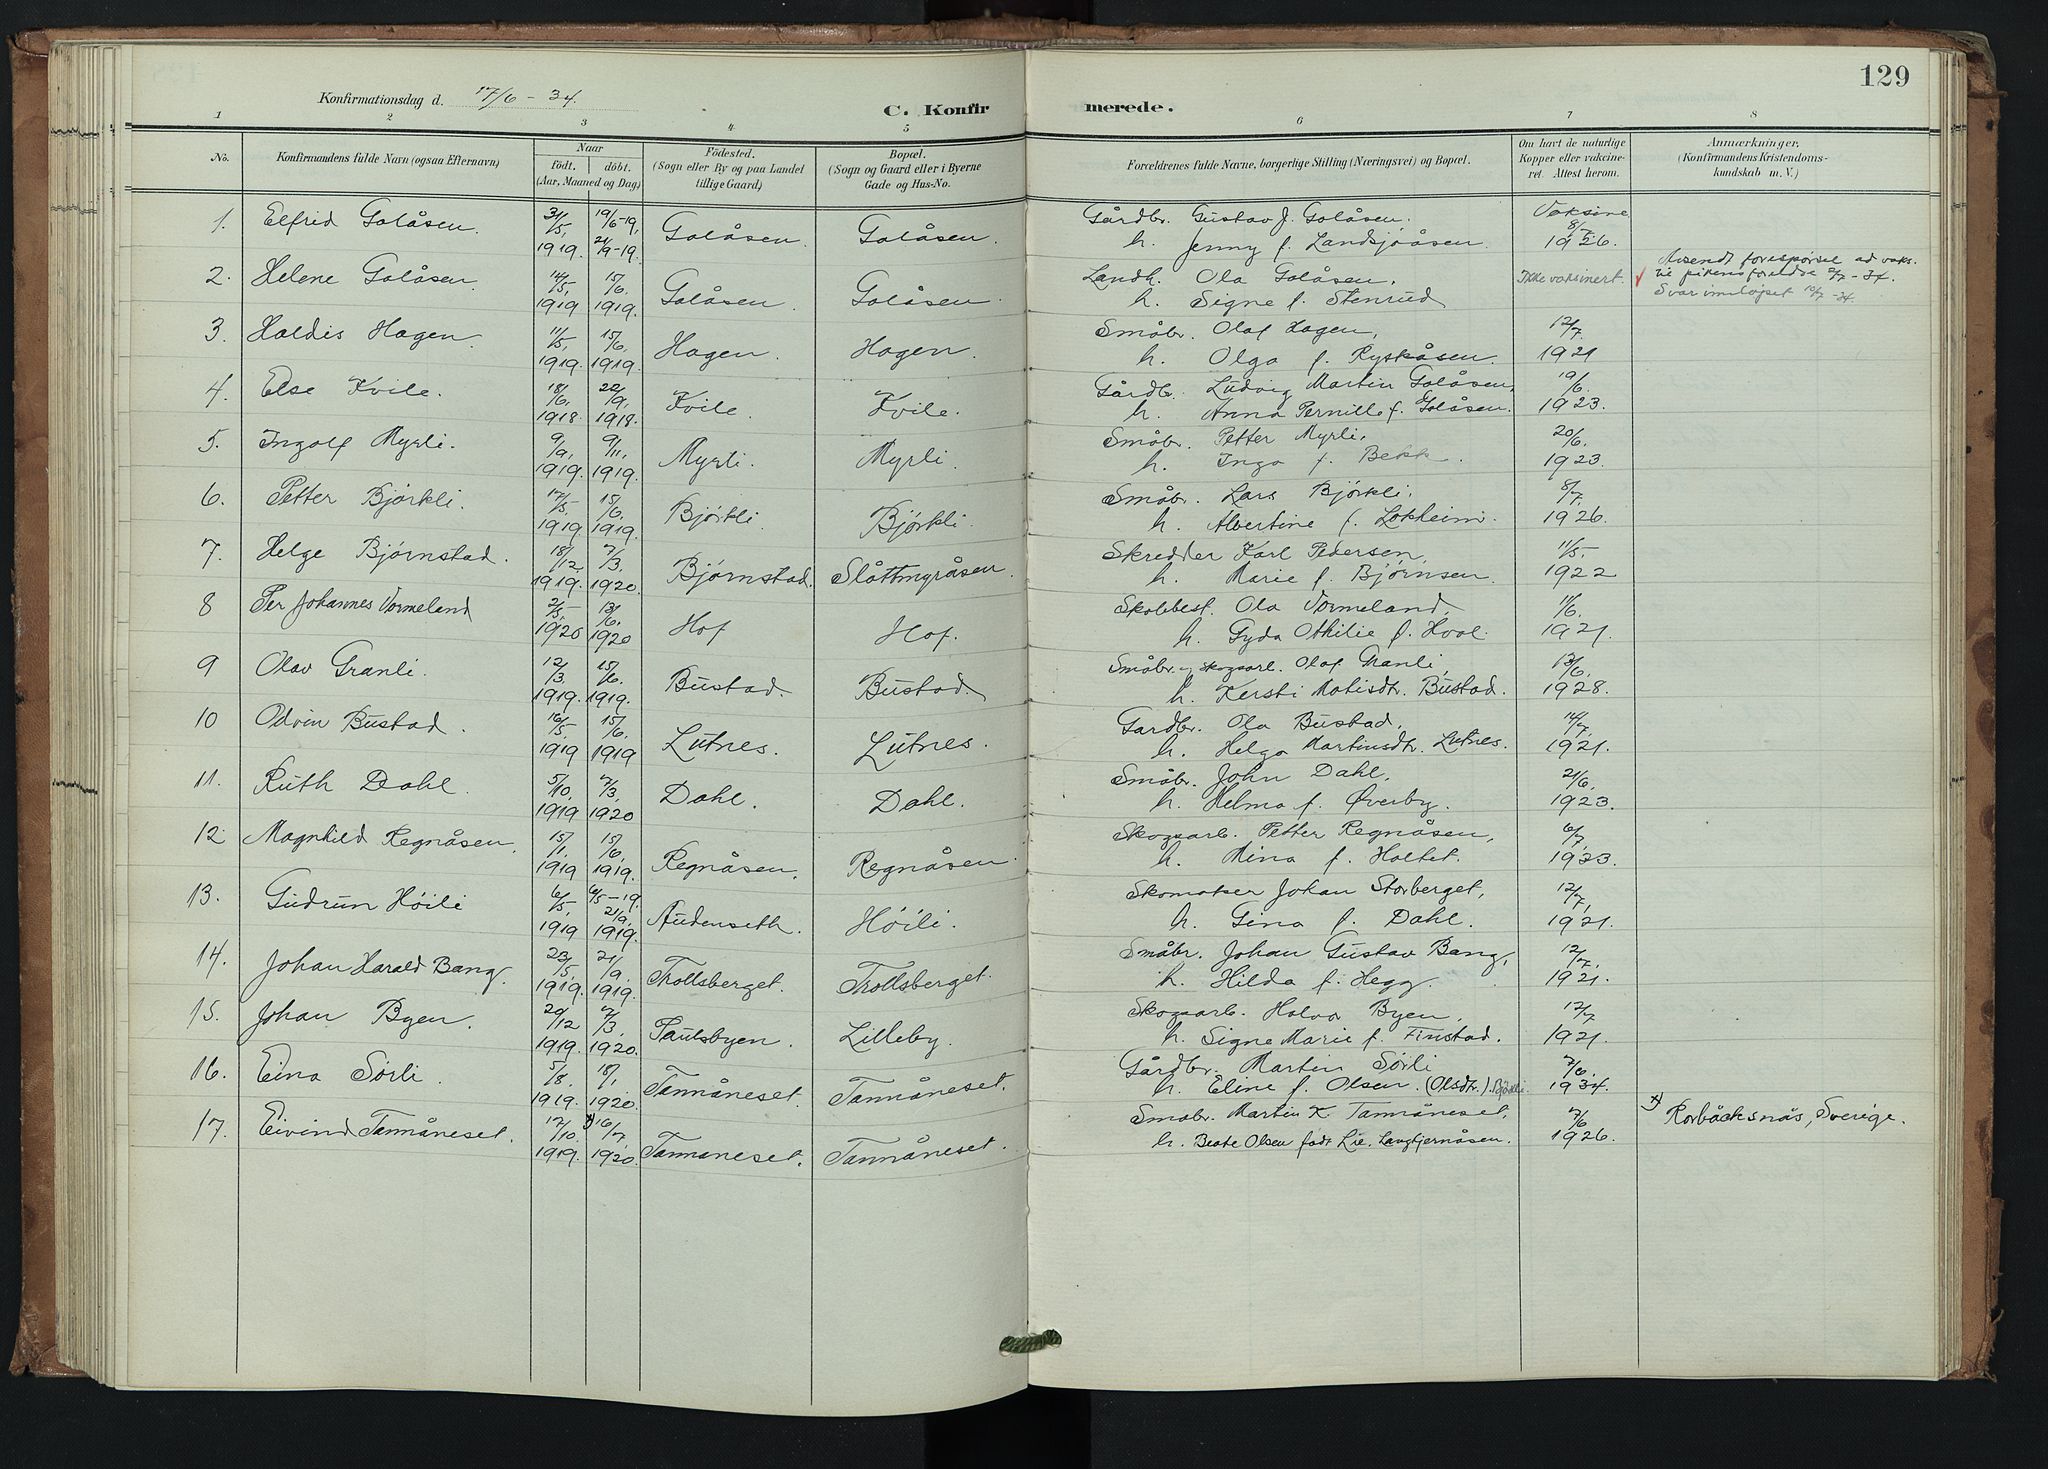 129
Konfirmationsdag d. 17/6 - 34.
C. Konfirmerede.
1 2 3 4 5 6 7 8
No. Konfirmandens fulde Navn (ogsaa Efternavn) Naar födt. döbt. (Aar, Maaned og Dag) Födested. (Sogn eller By og paa Landet tillige Gaard) Bopæl. (Sogn og Gaard eller i Byerne Gade og Hus-No. Forældrenes fulde Navne, borgerlige Stilling (Næringsvei) og Bopæl. Om havt de naturlige Kopper eller vakcineret. Attest herom. Anmærkninger. (Konfirmandens Kristendomskundskab m. V.)
1. Elfrid Galåsen. 31/5, 1919. 19/6-19, 21/9-19. Galåsen. Galåsen. Gårdbr. Gustav J. Galåsen. Vaksine 8/7
h. Jenny f. Landsjøåsen. 1926.
2. Helene Galåsen. 14/5, 1919 15/6. 1919. Galåsen. Galåsen. Landh. Ola Galåsen, Ikke vaksinert. Avsendt forespørsel ad vaks.
h. Signe f. Stenrud
3. Haldis Hagen. 11/5, 1919. 15/6, 1919. Hagen. Hagen. Småbr. Olaf Hagen, 12/7
h. Olga f. Ryskåsen. 1921
4. Else Kvile. 18/6, 1918. 22/9, 1918. Kvile. Kvile. Gårdbr. Ludvig Martin Galåsen, 19/6.
h. Anna Pernille f. Galåsen. 1923.
5. Ingolf Myrli. 9/9, 1919. 9/11, 1919. Myrli. Myrli. Småbr. Petter Myrli, 20/6.
h. Inga f. Bekk. 1923.
6. Petter Bjørkli. 17/5. 1919. 15/6. 1919. Bjørkli. Bjørkli. Småbr. Lars Bjørkli, 8/7.
h. Albertine f. Løkheim. 1926.
7. Helge Bjørnstad. 18/12. 1919. 7/3. 1920. Bjørnstad. Slåttmyråsen. Skredder Karl Pedersen, 11/5-
h. Marie f. Bjørnsen. 1922
8 Per Johannes Vormeland 2/5, 1920 13/6. 1920 Hof Hof. Skolebest. Ola Vormeland, 11/6.
h. Gyda Othilie f. Hval. 1921.
9 Olav Granli. 12/3. 1919. 15/6. 1919. Bustad. Bustad. Småbr. og skogsarb. Olaf Granli, 13/6.
h. Kersti Matisdtr. Bustad. 1928.
10 Odvin Bustad. 16/5. 1919 15/6. 1919 Lutnes. Lutnes. Gardbr. Ola Bustad, 14/7.
h. Helga Martinsdtr. Lutnes. 1921.
11. Ruth Dahl. 5/10. 1919 7/3. 1920 Dahl. Dahl. Småbr. John Dahl. 21/6.
h. Helma f. Øverby. 1923.
12. Magnhild Regnåsen. 15/1. 1919 15/6. 1919. Regnåsen. Regnåsen. Skogsarb. Petter Regnåsen, 6/7.
h. Mina f. Holtet. 1923.
13. Gudrun Høili 6/5, 1919 6/5-19. 21/9. 1919. Audenseth. Høili. Skomaker Johan Storberget, 12/7,
h. Gina f. Dahl. 1921.
14. Johan Harald Bang. 23/5. 1919. 21/9. 1919. Trollsberget. Trollsberget. Småbr. Johan Gustav Bang, 12/7.
h. Hilda f. Hegg. 1921.
15. Johan Byen. 20/12 1919. 7/3. 1920. Paulsbyen. Lilleby. Skogsarb. Halvor Byen, 12/7
h. Signe Marie f. Finstad. 1921.
16. Eina Sørli. 5/8. 1919. 18/1 1920. Tannåneset. Tannåneset. Gårdbr. Martin Sørli 7/6.
h. Eline f. Olsen (Olsdtr.) Bjørkli. 1934.
17. Eivind Tannåneset. 17/10. 1919. x) 16/7, 1920. Tannåneset. Tannåneset. Småbr. Martin K. Tannåneset, 7/6 x) Rörbäcksnäs, Sverige.
h. Beate Olsen født Lie, Langtjernåsen. 1926.